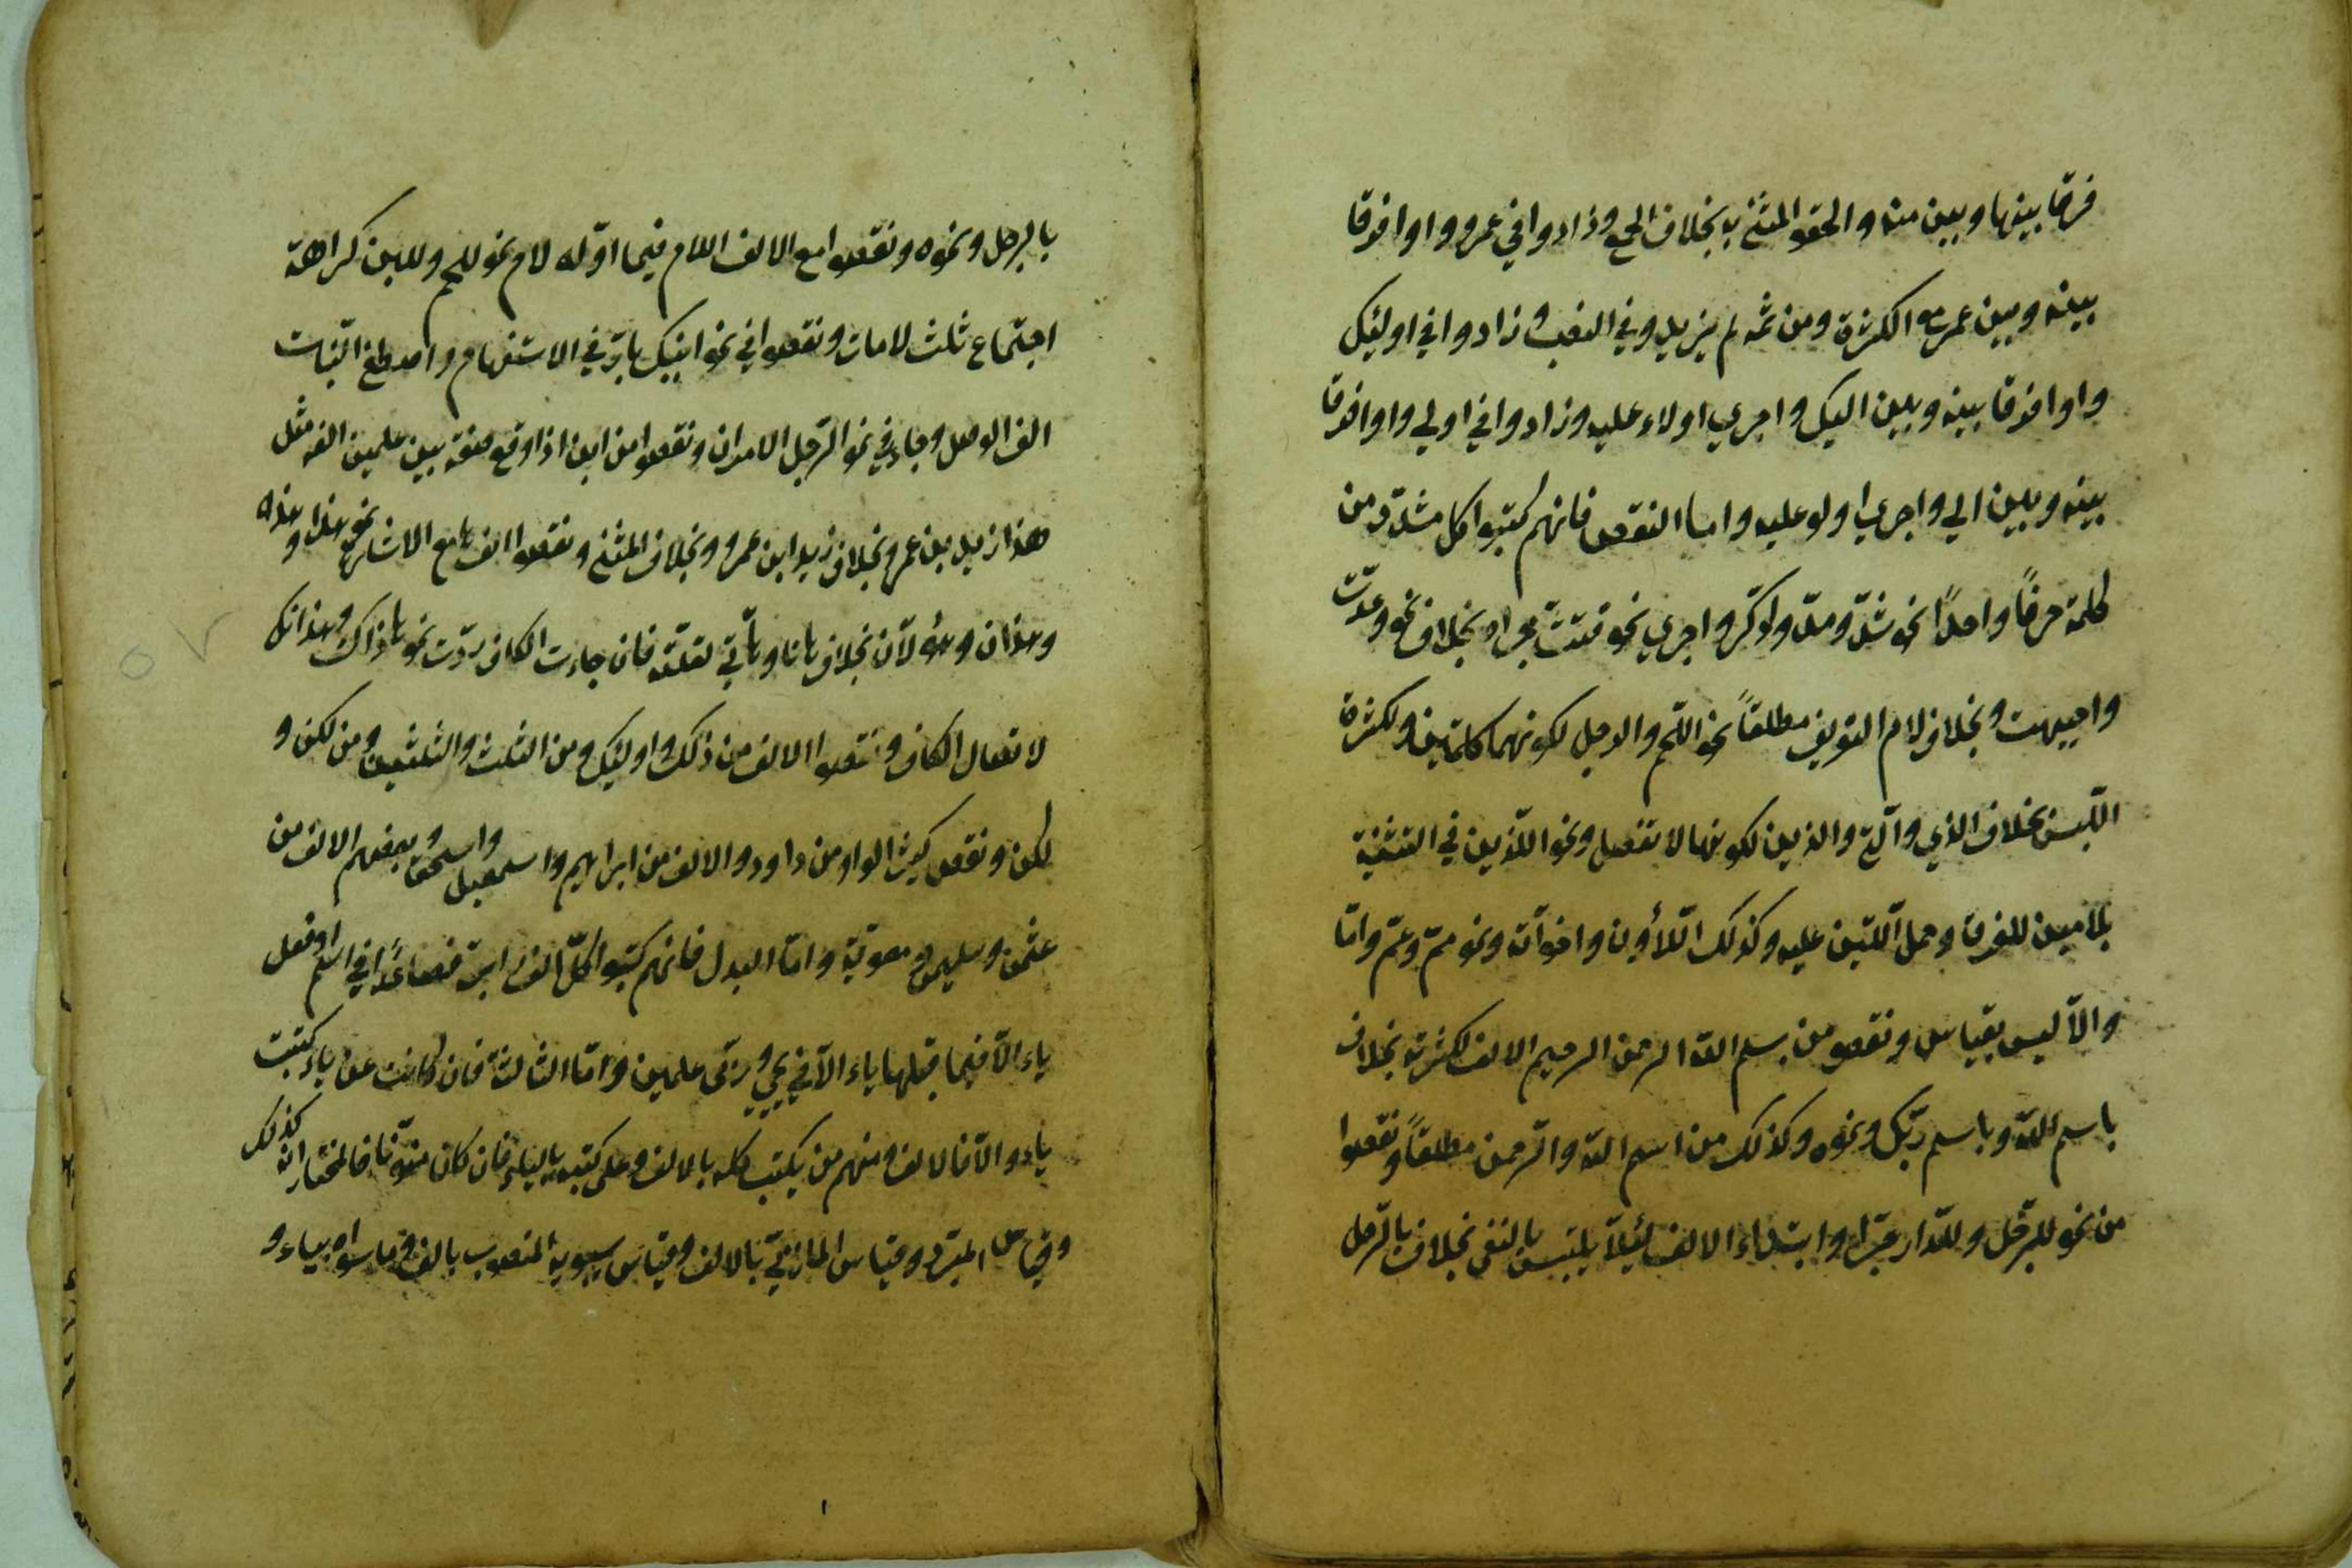 فرقا بينها وبين منه والحقوا المثنى به بخلاف الجمع وزادوا في عمرو واوا فرقا
بينه وبين عمر مع الكثرة ومن ثمه لم يزيدوه في النصب وزادوا في اولئك
واوا فرقا بينه وبين اليك واجري اولاء عليه وزادوا في اولي واوا فرقا
بينه وبين الي واجري اولو عليه واما النقص فانهم كتبوا كل مشدد من
كلمة حرفاً واحداً نحو شدّ ومدّ وادّكر واجري نحو قتتّ مجراه بخلاف نحو وعدتّ
واجبهت وبخلاف لام التعريف مطلقاً نحو اللحم والرجل لكونهما كلمتين ولكثرة
اللّبس بخلاف الذي والّتي والذين لكونها لا تنفصل ونحو اللّذين في التثنية
بلامين للفرق وحمل اللّتين عليه وكذلك اللّاؤن واخواته ونحو ممّ وعمّ وامّا
والّا ليس بقياس ونقصوا من بسم الله الرحمن الرحيم الالف لكثرته بخلاف
باسم الله وباسم ربّك ونحوه وكذلك من اسم الله والرّحمن مطلقاً ونقصوا
من نحو للرّجل وللدّار جرّا وابتداء الالف لئلّا يلتبس بالنفي بخلاف بالرّجل
بالرجل ونحوه ونقصوا مع الالف اللام فيما اوّله لام نحو للحم وللبن كراهة
اجتماع ثلث لامات ونقصوا في نحو ابنك بارّ في الاستفهام واصطفى البنات
الف الوصل وجاء في نحو الرّجل الامران ونقصوا من ابن اذا وقع صفة بين علمين الفه مثل
هذا زيد بن عمرو بخلاف زيد ابن عمرو وبخلاف المثنى ونقصوا الف ها مع الاشارة نحو هذا وهذه
وهذان وهؤلاء بخلاف هاتا وهاتي لقلّته فان جاءت الكاف ردّت نحو هاذاك وهاذانك
لاتصال الكاف ونقصوا الالف من ذلك واولئك ومن الثلث والثلثين ومن لكن و
لكنّ ونقص كثير الواو من داود والالف من ابراهيم واسمعيل واسحق وبعضهم الالف من
عثمن وسليمن ومعوية وامّا البدل فانهم كتبوا كلّ الف رابعة فصاعداً في اسم او فعل
ياء الّا فيما قبلها ياء الّا في يحيى وريّى علمين وامّا الثالثة فان كانت عن ياء كتبت
ياء والّا فالالف ومنهم من يكتب كله بالالف وعلى كتبه بالياء فان كان منوّنا فالمختار انه كذلك
وقياس المبرّد وقياس المازنيّ بالالف وقياس سيبويه المنصوب بالف وما سواه بياء و